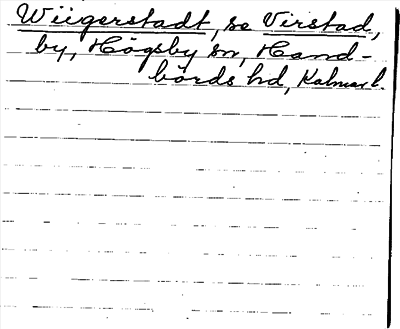 Wiigerstadt, se Virstad,
by, Högsby sn, Hand-
börds hd, Kalmar l.